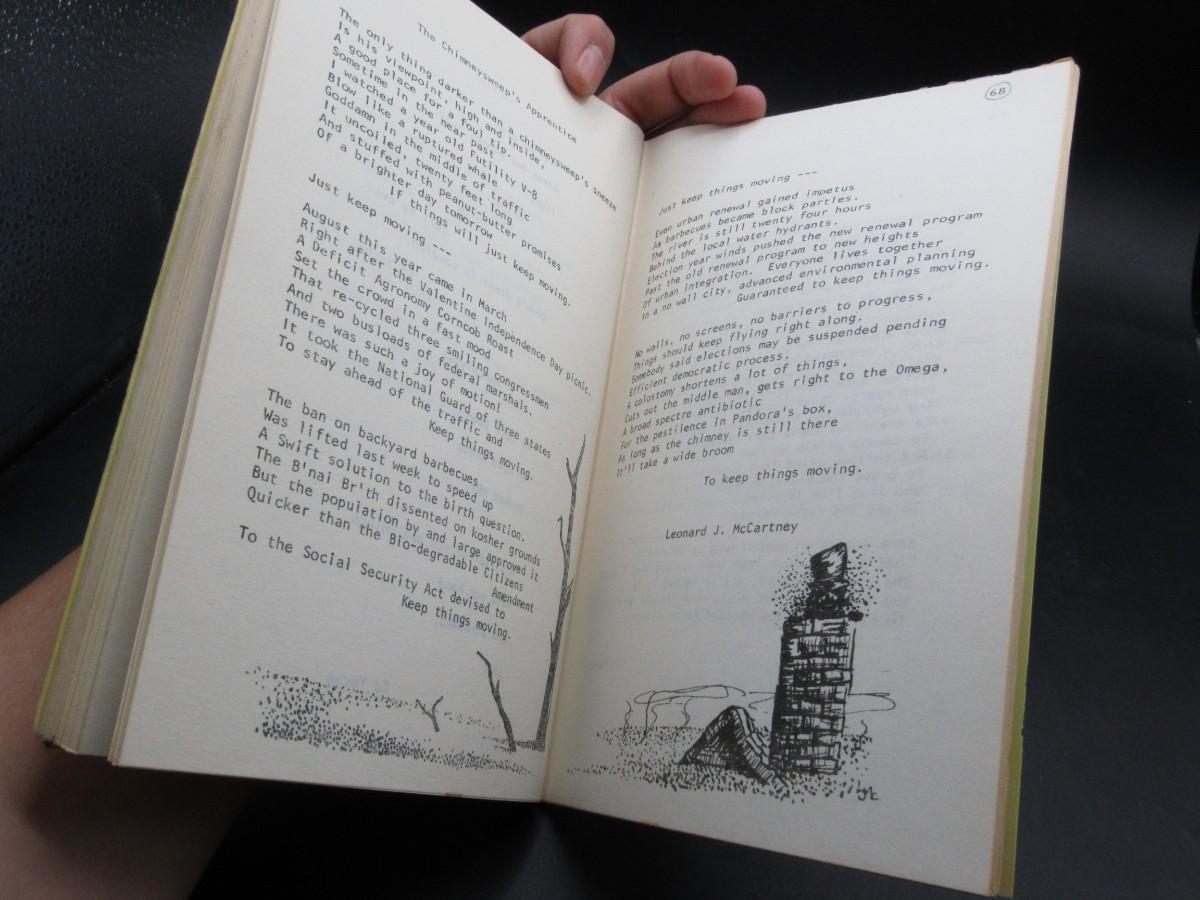 The Chimneysweep's Apprentice
The only thing darker than a chimneysweep's sneeze
Is his viewpoint, high and inside,
A good place for a foul tip.
Sometime in the near past
I watched a year old Futility V-8
Blow like a ruptured whale
Goddamn in the middle of traffic
It uncoiled, twenty feet long
And stuffed with peanut-butter promises
Of a brighter day tomorrow
If things will just keep moving.
Just keep moving ---
August this year came in March
Right after the Valentine Independence Day picnic.
A Deficit Agronomy Corncob Roast
Set the crowd in a fast mood
That re-cycled three smiling congressmen
And two busloads of federal marshals.
There was such a joy of motion!
It took the National Guard of three states
To stay ahead of the traffic and
Keep things moving.
The ban on backyard barbecues
Was lifted last week to speed up
A Swift solution to the birth question.
The B'nai Br'th dissented on kosher grounds
But the population by and large approved it
Quicker than the Bio-degradable Citizens
Amendment
To the Social Security Act devised to
Keep things moving.
68
Just keep things moving ---
Even urban renewal gained impetus
As barbecues became block parties.
The river is still twenty four hours
Behind the local water hydrants.
Election year winds pushed the new renewal program
Past the old renewal program to new heights
Of urban integration. Everyone lives together
In a no wall city, advanced environmental planning
Guaranteed to keep things moving.
No walls, no screens, no barriers to progress,
Things should keep flying right along.
Somebody said elections may be suspended pending
Efficient democratic process.
A colostomy shortens a lot of things,
Cuts out the middle man, gets right to the Omega,
A broad spectre antibiotic
For the pestilence in Pandora's box,
As long as the chimney is still there
It'll take a wide broom
To keep things moving.
Leonard J. McCartney